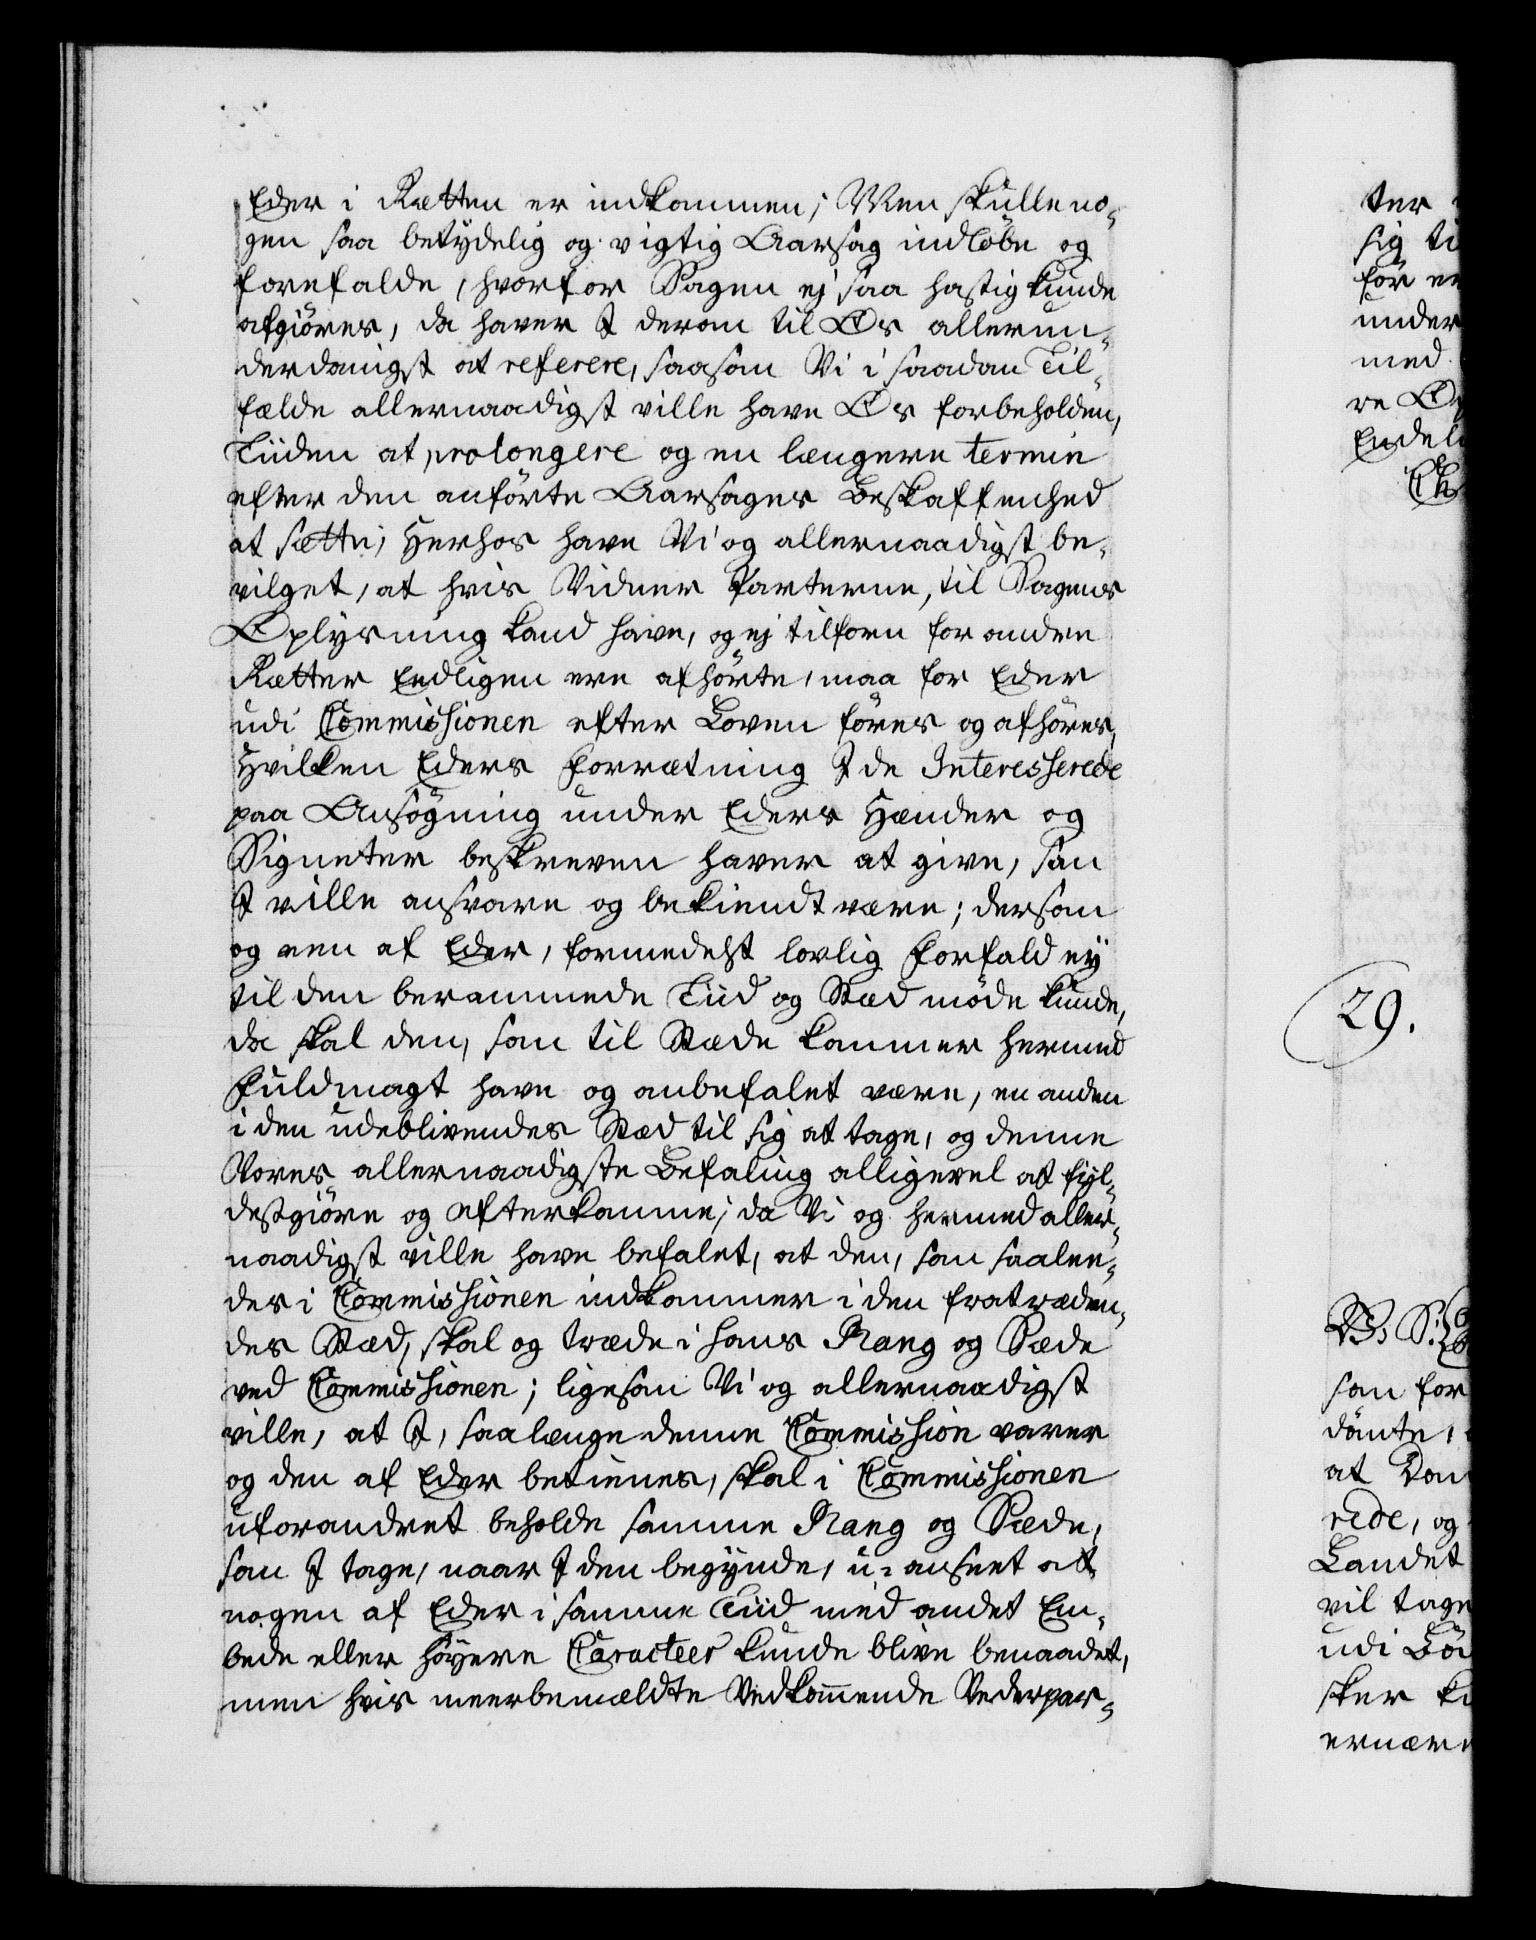 Eder i Rætten er indkommen; Men skulle no-
gen saa betydelig og vigtig Aarsag indløbe og
forefalde, hvorfor Sagen ej saa hastig kunde
afgiøres, da haver I derom til Os allerun-
derdanigst at referere, saasom Vi i saadan Til-
fælde allernaadigst ville have Os forbeholden,
Tiiden at prolongere og en længere termin
efter den anførte Aarsages Beskaffenhed
at sætte; Herhos have Vi og allernaadigst be-
vilget, at hvis Vidner Parterne, til Sagens
Oplysning kand have, og ej tilforn for andre
Rætter Endeligen ere afhørte, maa for Eder
udi Commissionen efter Loven føres og afhøres,
Hvilken Eders Forrætning I de Interesserede
paa Ansøgning under Eders Hænder og
Signeter beskreven haver at give, som
I ville ansvare og bekiendt være; dersom
og een af Eder, formedelst lovlig Forfald ey
til den berammede Tiid og Stæd møde kunde,
da skal den, som til Stæde kommer hermed
Fuldmagt have og anbefalet være, en anden
i den udeblivendes Stæd til sig at tage, og denne
Vores allernaadigste Befaling alligevel at fyl-
destgiøre og efterkomme; da Vi og hermed aller-
naadigst ville have befalet, at den, som saalee-
des i Commissionen indkommer i den fratræden-
des Stæd, skal og træde i hans Rang og Sæde
ved Commissionen; ligesom Vi og allernaadigst
ville, at I, saalænge denne Commission varer
og den af Eder betienes, skal i Commissionen
uforandret beholde samme Rang og Sæde,
som I tage, naar I den begynde, u-anseet at
nogen af Eder i samme Tiid med andet Em-
bede eller høyere Caracteer kunde blive benaadet,
men hvis meerbemældte Vedkommende Vederpar-
ter
sig ti
før er
under
med
re
Endeli
29.
som for
dømte,
at Dom
rede, og
Landet
vil tage
udi
sker
ernær